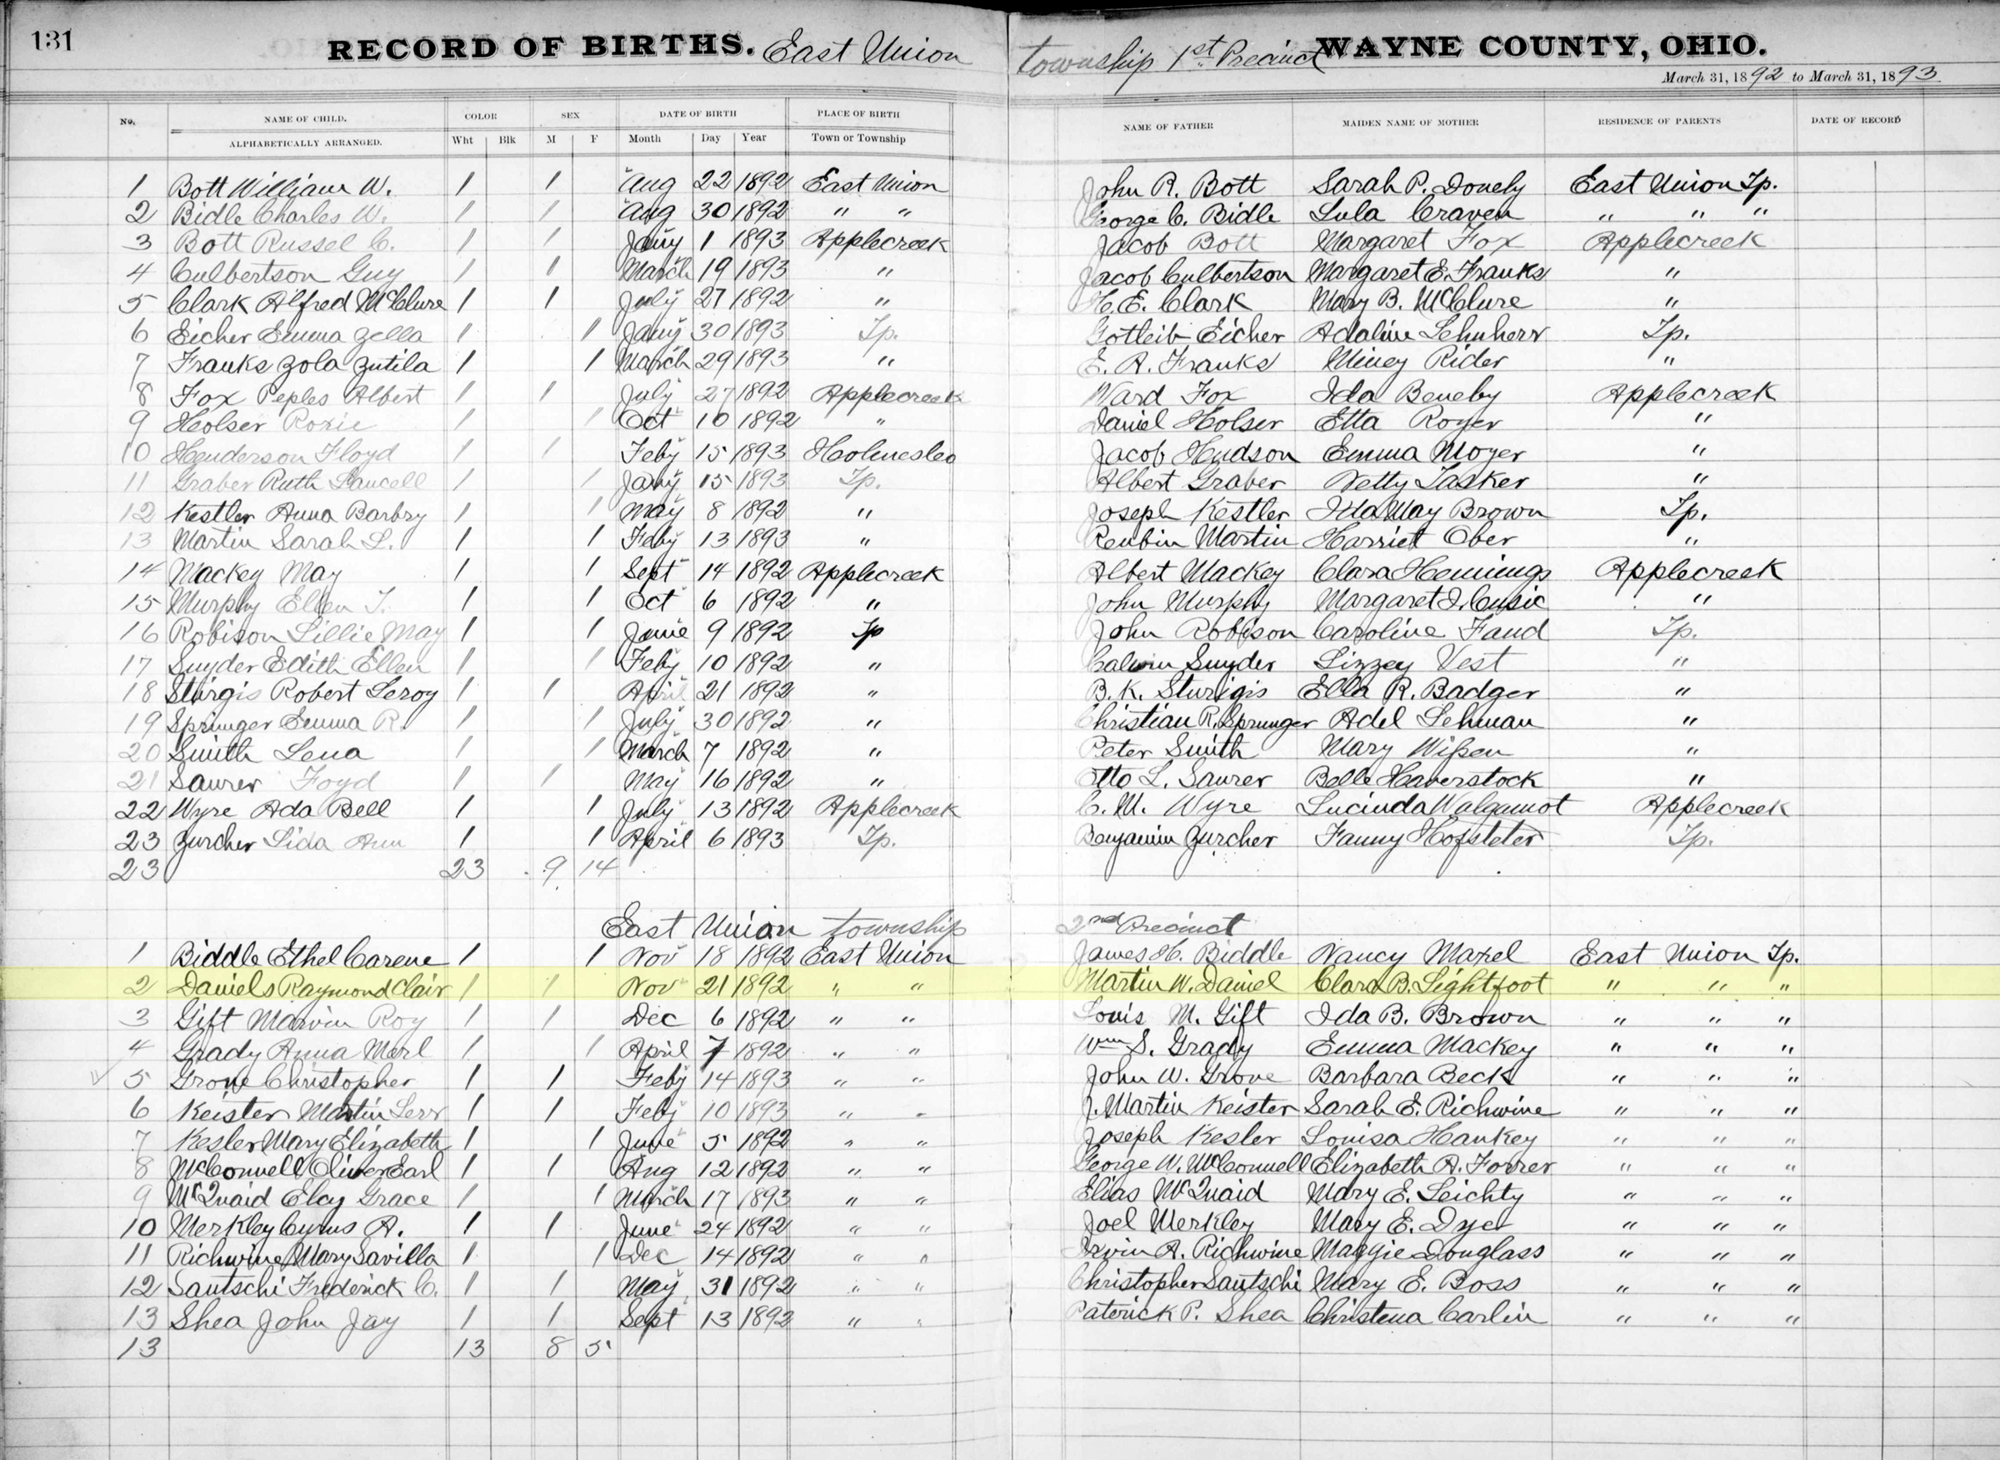 131
RECORD OF BIRTHS. East Union township 1st Precinct WAYNE COUNTY, OHIO.
March 31, 1892 to March 31, 1893
No. NAME OF CHILD. COLOR SEX DATE OF BIRTH PLACE OF BIRTH NAME OF FATHER MAIDEN NAME OF MOTHER RESIDENCE OF PARENTS DATE OF RECORD
ALPHABETICALLY ARRANGED. Wht Blk M F Month Day Year Town or Township
1 Bott William W. 1 1 Aug 22 1892 East Union John R. Bott Sarah P. Donely East Union Tp.
2 Bidle Charles W. 1 1 Aug 30 1892 " " George C. Bidle Lula Craven " " "
3 Bott Russel C. 1 1 Jany 1 1893 Applecreek Jacob Bott Margaret Fox Applecreek
4 Culbertson Guy 1 1 March 19 1893 " Jacob Culbertson Margaret E. Franks "
5 Clark Alfred McClure 1 1 July 27 1892 " H. E. Clark Mary B. McClure "
6 Eicher Emma Zella 1 1 Jany 30 1893 Tp. Gotleib Eicher Adaline Lehnherr Tp.
7 Franks Zola Zutila 1 1 March 29 1893 " E. A. Franks Miney Rider "
8 Fox Peples Albert 1 1 July 27 1892 Applecreek Ward Fox Ida Beneby Applecreek
9 Holser Roxie 1 1 Oct 10 1892 " Daniel Holser Etta Royer "
10 Henderson Floyd 1 1 Feby 15 1893 Holmesleo Jacob Hudson Emma Moyer "
11 Graber Ruth Laucell 1 1 Jany 15 1893 Tp. Albert Graber Netty Tasker "
12 Kestler Anna Barbry 1 1 May 8 1892 " Joseph Kestler Ida May Brown Tp.
13 Martin Sarah L. 1 1 Feby 13 1893 " Reubin Martin Harriet Ober "
14 Mackey May 1 1 Sept 14 1892 Applecreek Albert Mackey Clara Hemings Applecreek
15 Murphy Ellen T. 1 1 Oct 6 1892 " John Murphy Margaret J. Cusic "
16 Robison Lillie May 1 1 June 9 1892 Tp John Robison Caroline Faud Tp.
17 Snyder Edith Ellen 1 1 Feby 10 1892 " Calvin Snyder Lizzey Vest "
18 Sturgis Robert Leroy 1 1 April 21 1892 " B. K. Sturigis Ella R. Badger "
19 Sprunger Emma R. 1 1 July 30 1892 " Christian R. Sprunger Adel Lehman "
20 Smith Lena 1 1 March 7 1892 " Peter Smith Mary Wißen "
21 Saurer Foyd 1 1 May 16 1892 " Otto L. Saurer Belle Haverstock "
22 Wyre Ada Bell 1 1 July 13 1892 Applecreek C. M. Wyre Lucinda Walgamot Applecreek
23 Zurcher Lida Ann 1 1 April 6 1893 Tp. Benjamin Zurcher Fanny Hofsteter Tp.
23 23 9 14
East Union township 2nd Precinct
1 Biddle Ethel Carene 1 1 Nov 18 1892 East Union James H. Biddle Nancy Mazel East Union Tp.
2 Daniels Raymond Clair 1 1 Nov 21 1892 " " Martin W. Daniel Clara B. Lightfoot " " "
3 Gift Marvin Roy 1 1 Dec 6 1892 " " Louis M. Gift Ida B. Brown " " "
4 Grady Anna Marl 1 1 April 7 1892 " " Wm S. Grady Emma Mackey " " "
5 Grove Christopher 1 1 Feby 14 1893 " " John W. Grove Barbara Beck " " "
6 Keister Martin Lerr 1 1 Feby 10 1893 " " J. Martin Keister Sarah E. Richwine " " "
7 Kesler Mary Elizabeth 1 1 June 5 1892 " " Joseph Kesler Louisa Hankey " " "
8 McConnell Oliver Earl 1 1 Aug 12 1892 " " George W. McConnell Elizabeth A. Forrer " " "
9 McQuaid Elcy Grace 1 1 March 17 1893 " " Elias McQuaid Mary E. Leichty " " "
10 Merkley Cyrus A. 1 1 June 24 1892 " " Joel Merkley Mary E. Dye " " "
11 Richwine Mary Savilla 1 1 Dec 14 1892 " " Irvin A. Richwine Maggie Douglass " " "
12 Santschi Frederick C. 1 1 May 31 1892 " " Christopher Santschi Mary E. Boss " " "
13 Shea John Jay 1 1 Sept 13 1892 " " Paterick P. Shea Christena Carlin " " "
13 13 8 5